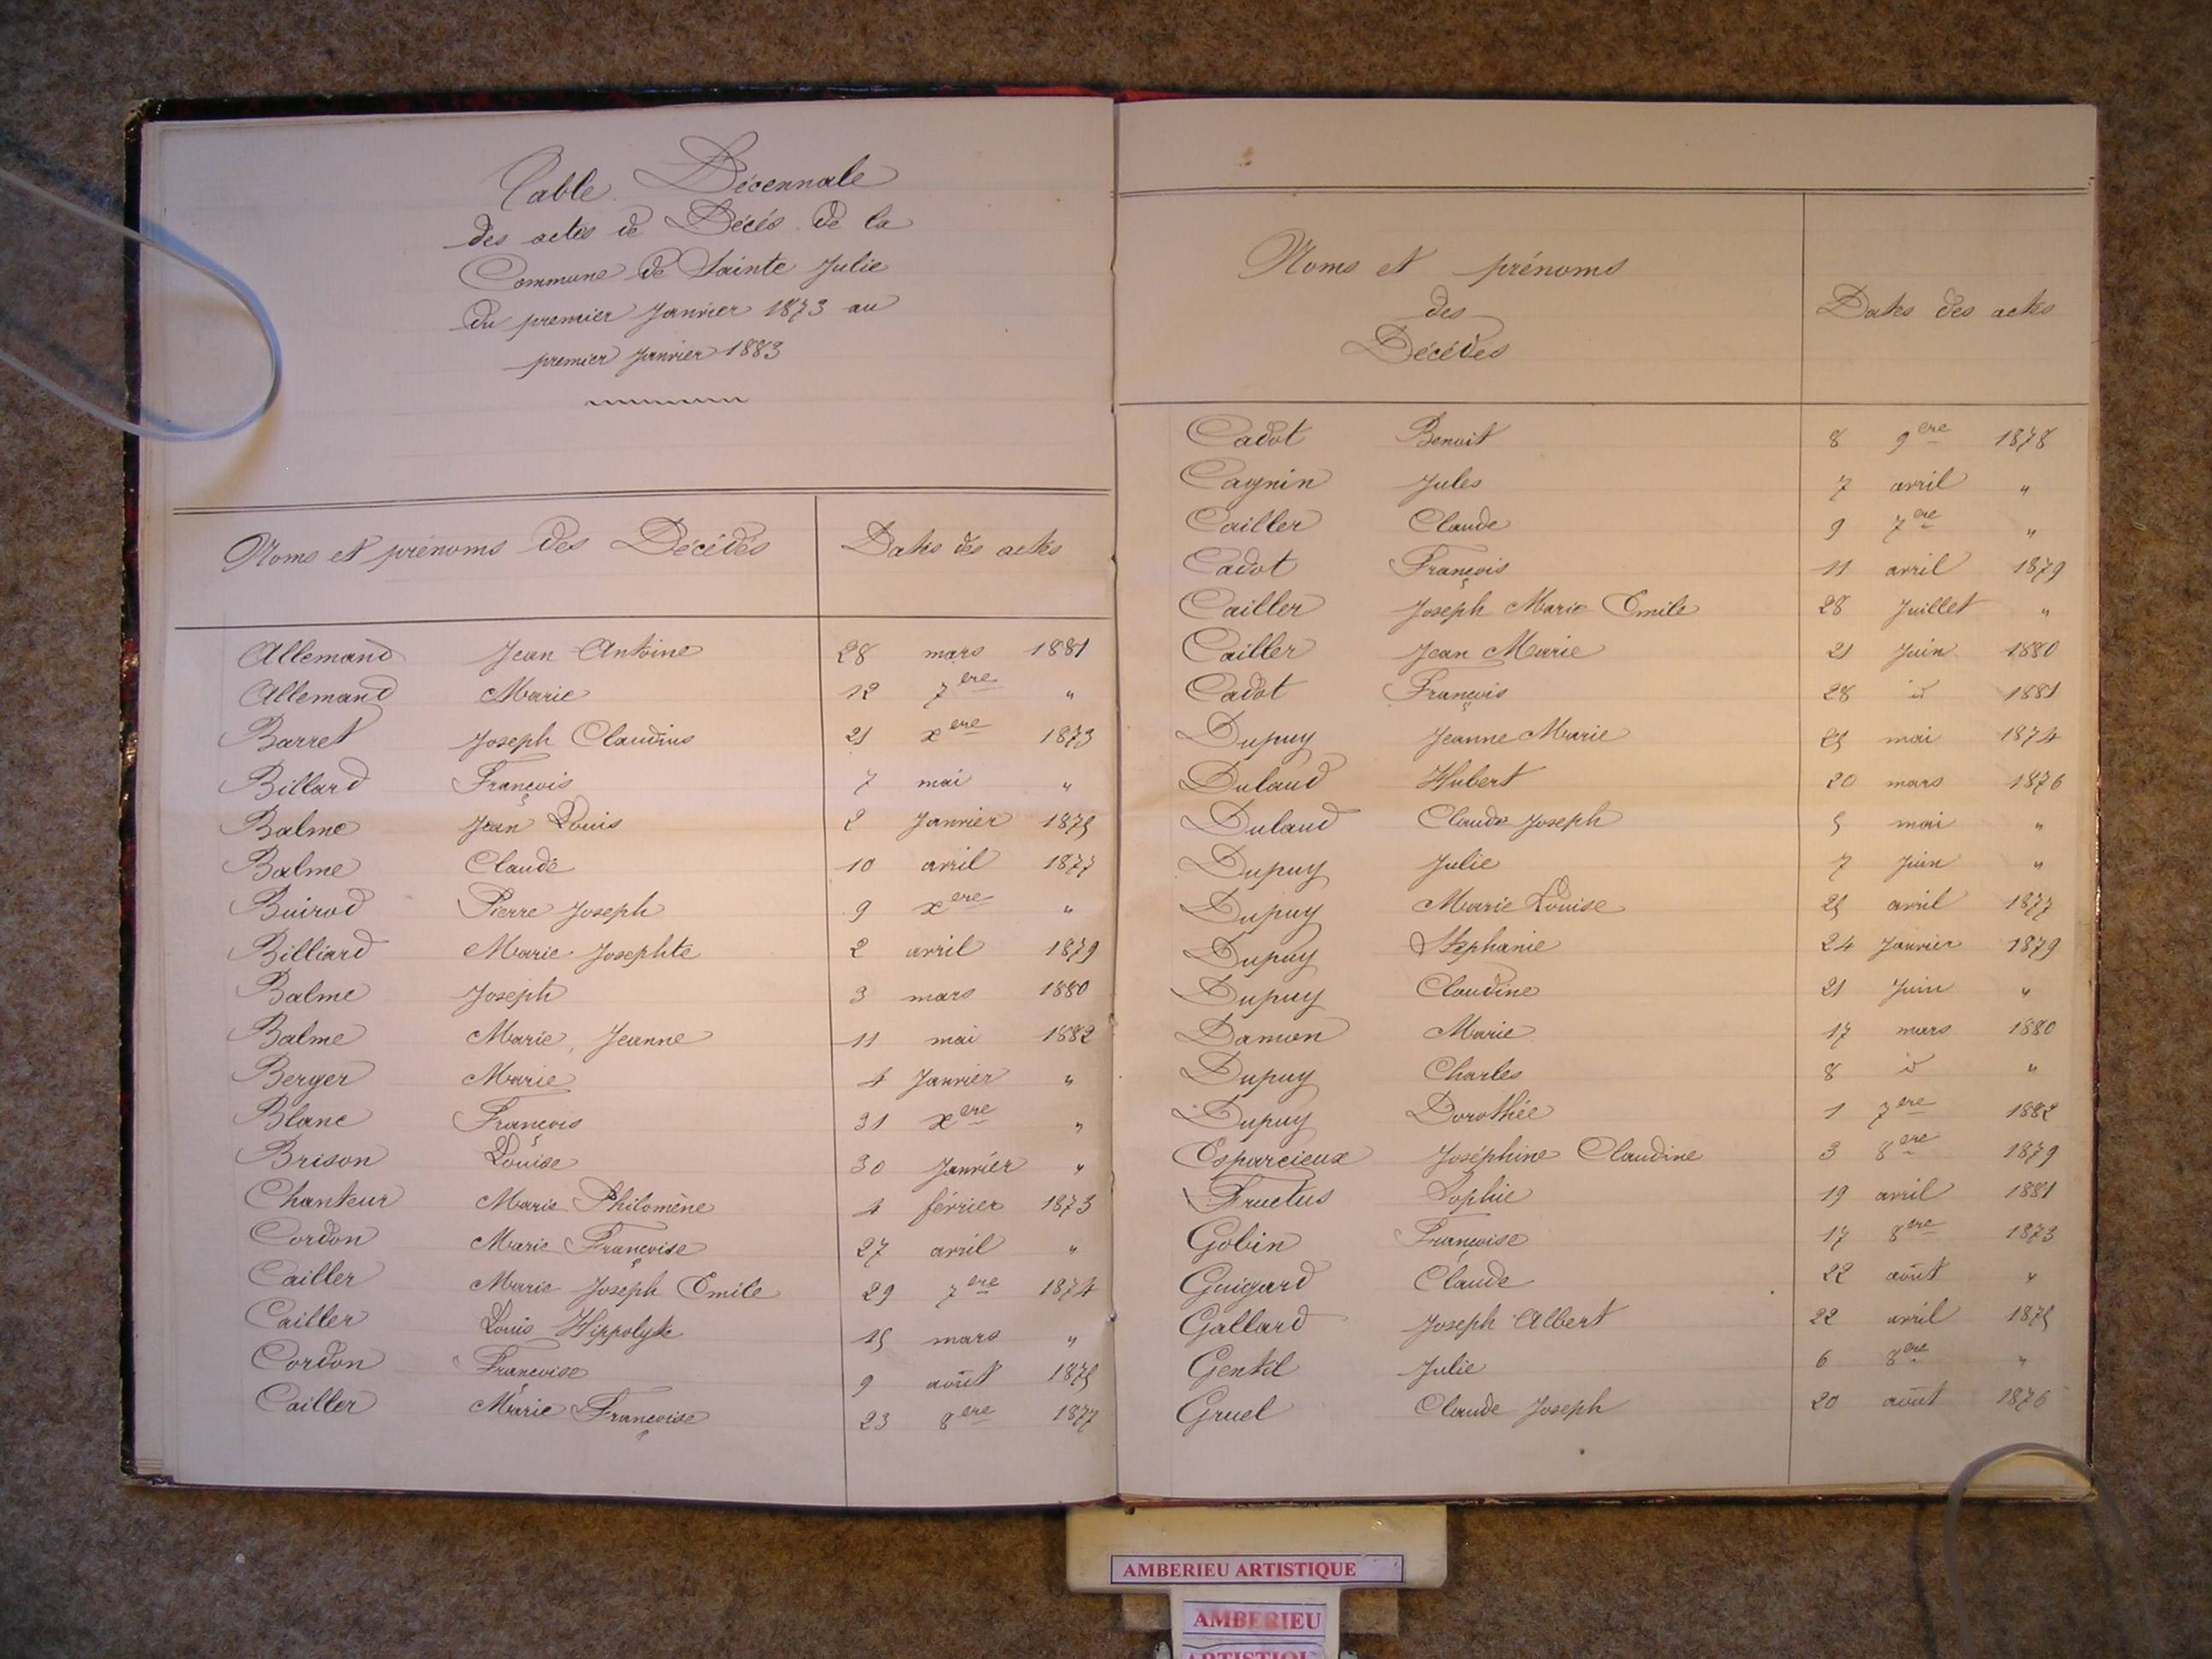 Table Décennale
des actes de Décés de la
Commune de Sainte Julie
du premier Janvier 1873 au
premier Janvier 1883
Noms et prénoms des Décédés Dates des actes
Allemand Jean Antoine 28 mars 1881
Allemand Marie 12 7ere "
Barret Joseph Claudius 21 xere 1873
Billard François 7 mai "
Balme Jean Louis 2 Janvier 1875
Balme Claude 10 avril 1877
Buirod Pierre Joseph 9 xere "
Billiard Marie Josephte 2 avril 1879
Balme Joseph 3 mars 1880
Balme Marie, Jeanne 11 mai 1882
Berger Marie 4 Janvier "
Blanc François 31 xere "
Brison Louise 30 Janvier "
Chanteur Marie Philomène 4 février 1873
Cordon Marie Françoise 27 avril "
Cailler Marie Joseph Emile 29 7ere 1874
Cailler Louis Hippolyte 15 mars "
Cordon Françoise 9 août 1875
Cailler Marie Françoise 23 8ere 1877
Noms et prénoms
des
Décédés
Dates des actes
Cadot Benoit 8 9ere 1878
Cagnin Jules 7 avril "
Cailler Claude 9 7ere "
Cadot François 11 avril 1879
Cailler Joseph Marie Emile 28 Juillet "
Cailler Jean Marie 21 Juin 1880
Cadot François 28 id 1881
Dupuy Jeanne Marie 25 mai 1874
Dulaud Hubert 20 mars 1876
Dulaud Claude Joseph 5 mai "
Dupuy Julie 7 Juin "
Dupuy Marie Louise 25 avril 1877
Dupuy Stéphanie 24 Janvier 1879
Dupuy Claudine 21 Juin "
Damon Marie 17 mars 1880
Dupuy Charles 8 id "
Dupuy Dorothée 1 7ere 1882
Esparcieux Joséphine Claudine 3 8ere 1879
Fructus Sophie 19 avril 1881
Gobin Françoise 17 8ere 1873
Guigard Claude 22 août "
Gallard Joseph Albert 22 avril 1875
Gentil Julie 6 8ere "
Gruel Claude Joseph 20 août 1876
AMBERIEU ARTISTIQUE
AMBERIEU
ARTISTIQU